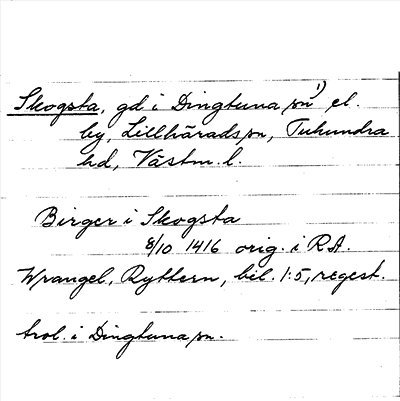 Skogsta, gd i Dingtuna sn 1) el.
by, Lillhärads sn, Tuhundra
hd, Västm. l.
Birger i Skogsta
8/10 1416 orig. i RA.
Wrangel, Ryttern, bil. 1:5, regest.
trol. i Dingtuna sn.